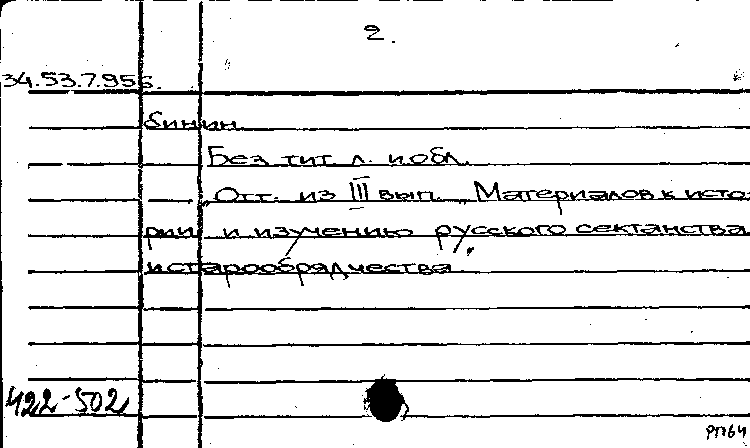 2.
34.53.7.955.
бинин
Без тит л. и обл.
Отт. из III вып. „Материалов к исто-
рии и изучению русского сектанства
и старообрядчества"
422-502